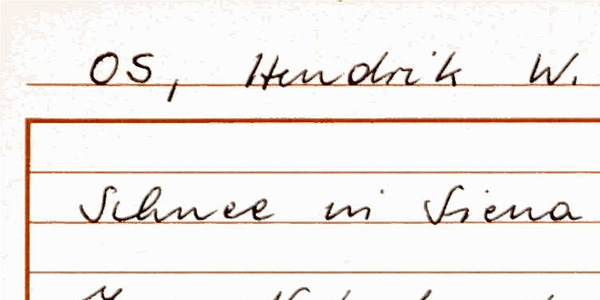 OS, Hendrik W.
Schnee in Siena